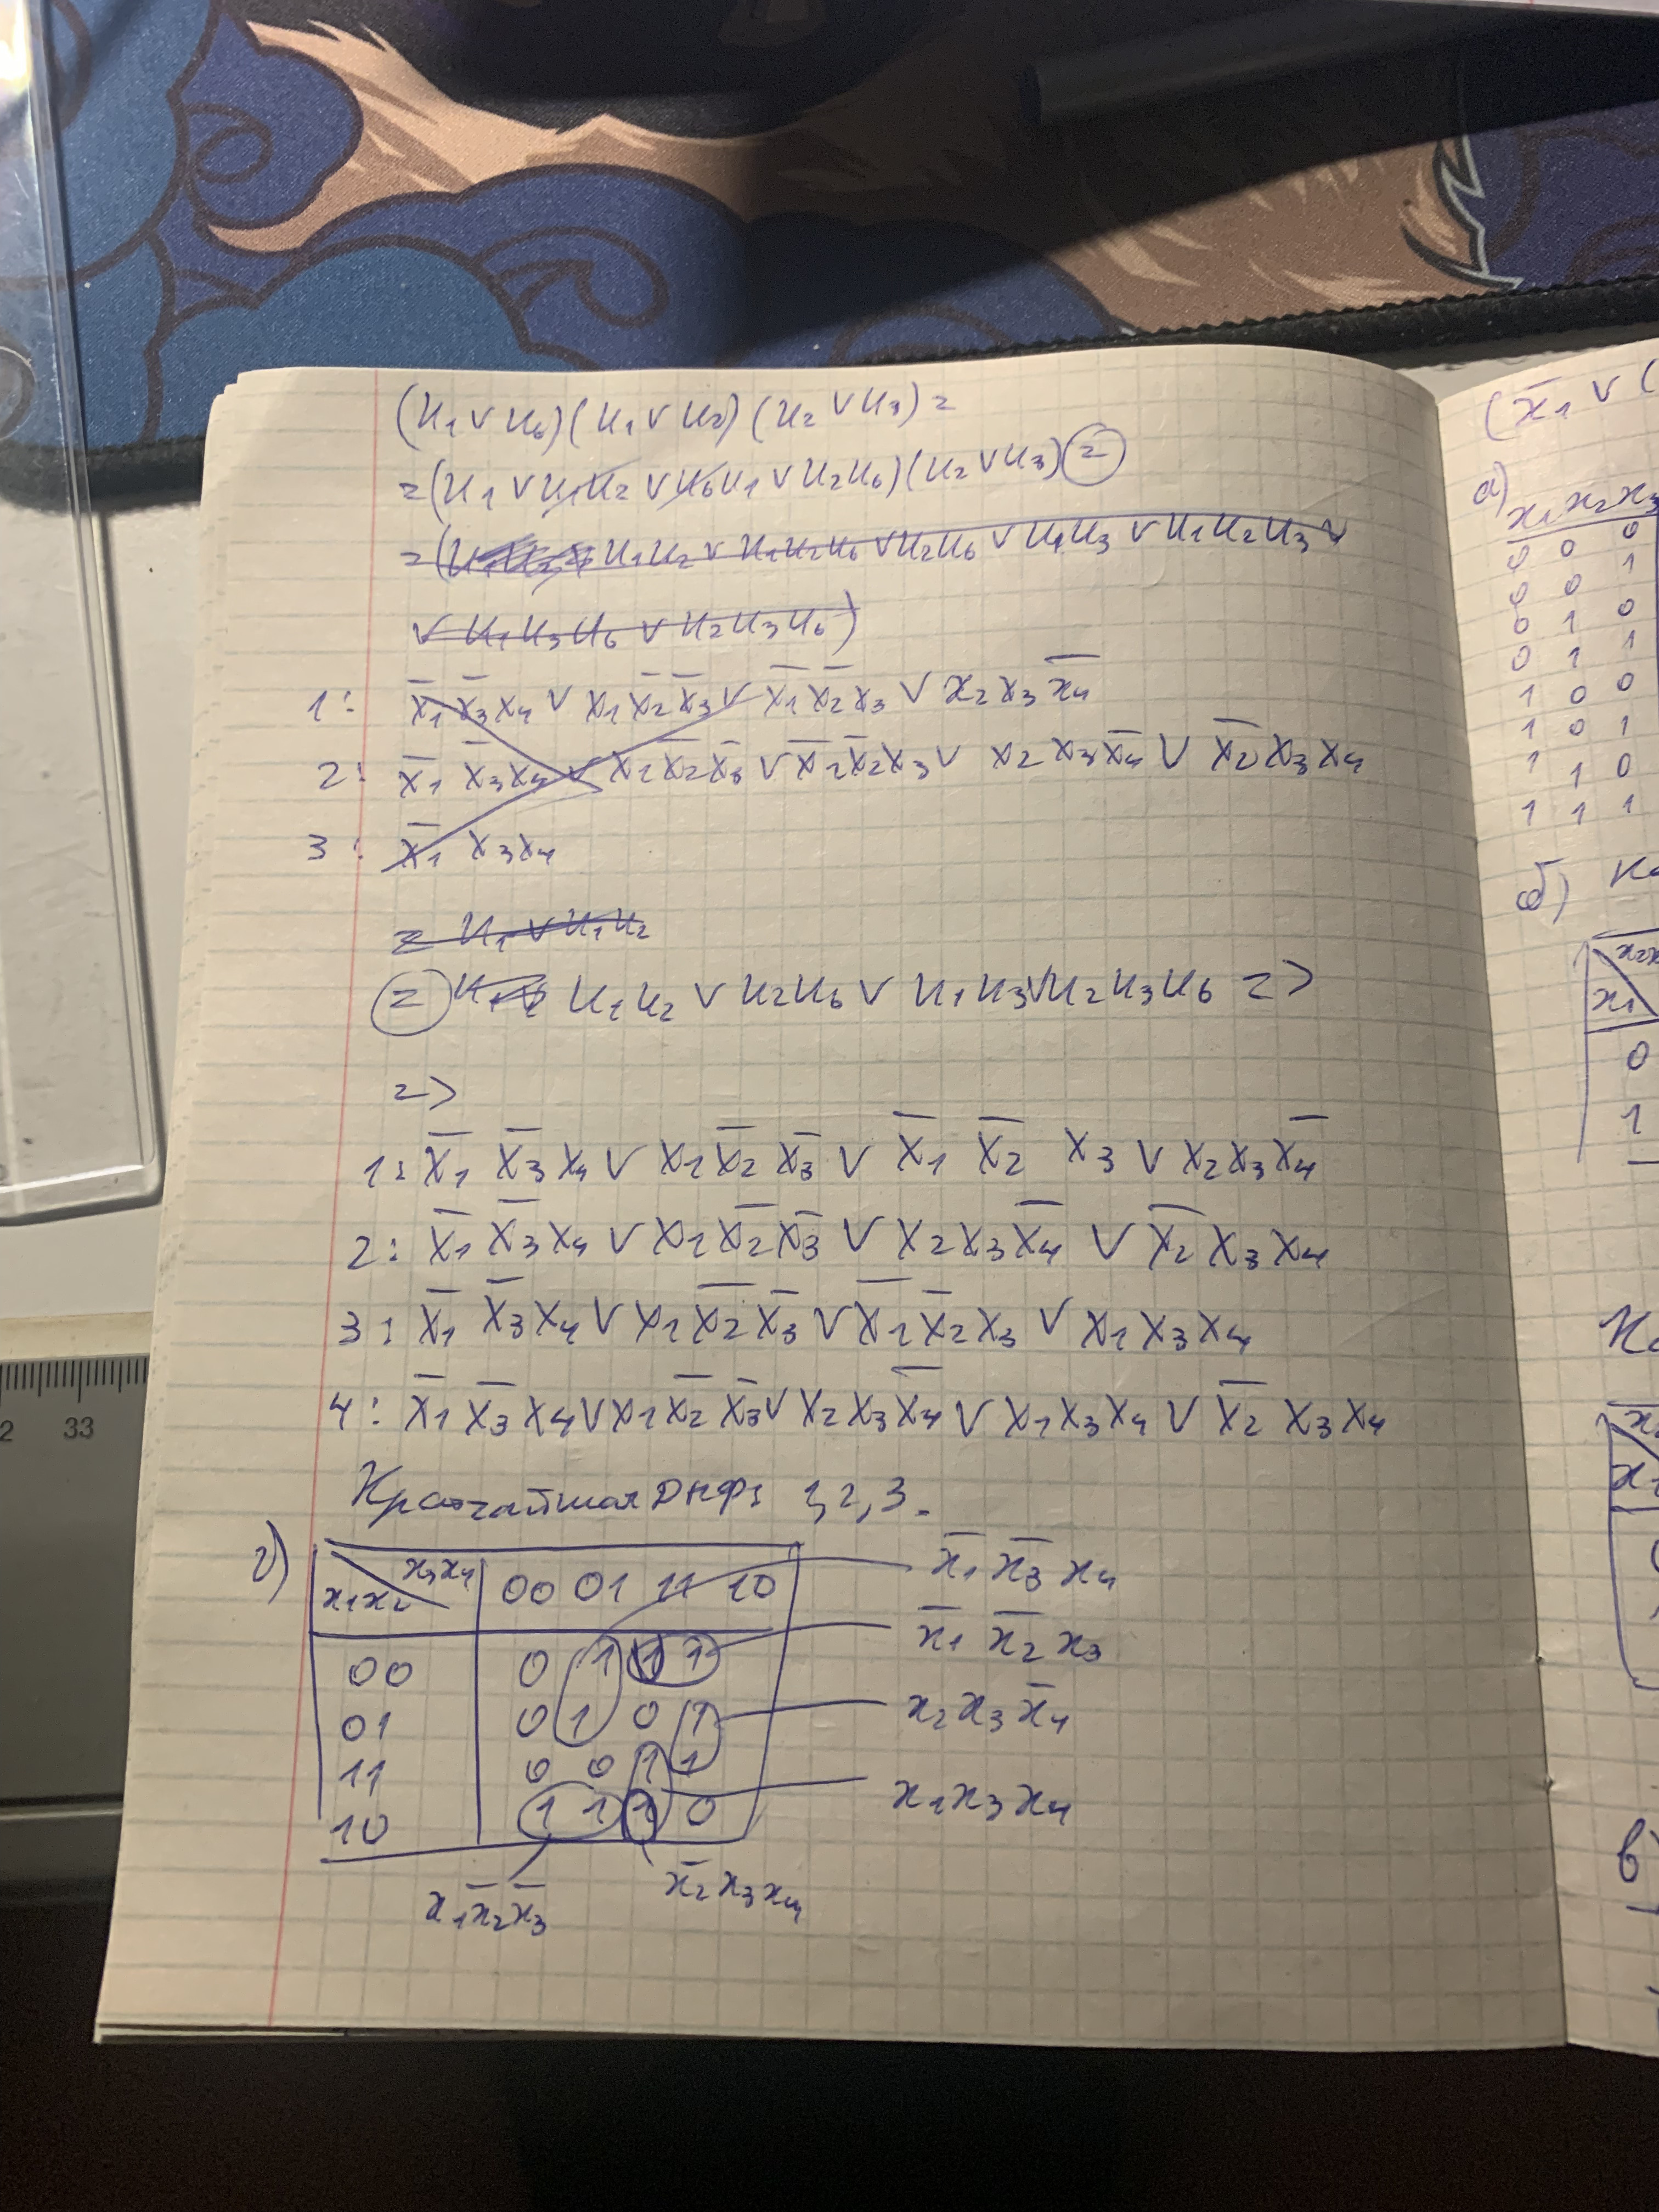 (u₁ ∨ u₆)(u₁ ∨ u₂)(u₂ ∨ u₃) =
= (u₁ ∨ u₁u₂ ∨ u₆u₁ ∨ u₂u₆)(u₂ ∨ u₃) =
u₁u₂ ∨ u₁u₂u₆ ∨ u₂u₆ ∨ u₁u₃ ∨ u₁u₂u₃ ∨
∨ u₁u₃u₆ ∨ u₂u₃u₆)
1: x̅₁ x̅₃ x₄ ∨ x₁ x̅₂ x̅₃ ∨ x̅₁ x̅₂ x₃ ∨ x₂ x₃ x̅₄
2: x̅₁ x̅₃ x₄ ∨ x₁ x̅₂ x̅₃ ∨ x̅₁ x̅₂ x₃ ∨ x₂ x₃ x̅₄ ∨ x̅₂ x₃ x₄
3: x̅₁ x₃ x₄
= u₁ ∨ u₁u₂
= u₁u₂ ∨ u₂u₆ ∨ u₁u₃ ∨ u₂u₃u₆ =>
=>
1: x̅₁ x̅₃ x₄ ∨ x₁ x̅₂ x̅₃ ∨ x̅₁ x̅₂ x₃ ∨ x₂ x₃ x̅₄
2: x̅₁ x̅₃ x₄ ∨ x₁ x̅₂ x̅₃ ∨ x₂ x₃ x̅₄ ∨ x̅₂ x₃ x₄
3: x̅₁ x̅₃ x₄ ∨ x₁ x̅₂ x̅₃ ∨ x̅₁ x̅₂ x₃ ∨ x₁ x₃ x₄
4: x̅₁ x̅₃ x₄ ∨ x₁ x̅₂ x̅₃ ∨ x₂ x₃ x̅₄ ∨ x₁ x₃ x₄ ∨ x̅₂ x₃ x₄
Кратчайшая ДНФ: 1, 2, 3.
г)
x₁x₂ x₃x₄ 00 01 11 10
x̅₁ x̅₃ x₄
00 0 1 1 1
x̅₁ x̅₂ x₃
01 0 1 0 1
x₂ x₃ x̅₄
11 0 0 1 1
x₁ x₃ x₄
10 1 1 1 0
x₁ x̅₂ x̅₃
x̅₂ x₃ x₄
2 33
(x̅₁ ∨ (
а)
x₁ x₂ x₃
0 0 0
0 0 1
0 1 0
0 1 1
1 0 0
1 0 1
1 1 0
1 1 1
б)
x₁
0
1